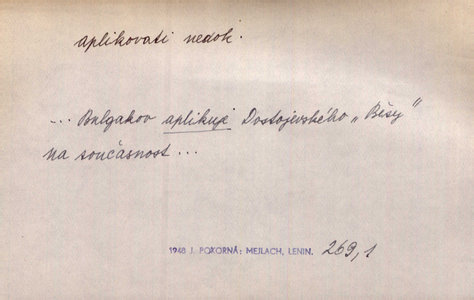 aplikovati nedok.
... Bulgakov aplikuje Dostojevského „Běsy“
na současnost...
1948 J. POKORNÁ: MEJLACH, LENIN. 269,1